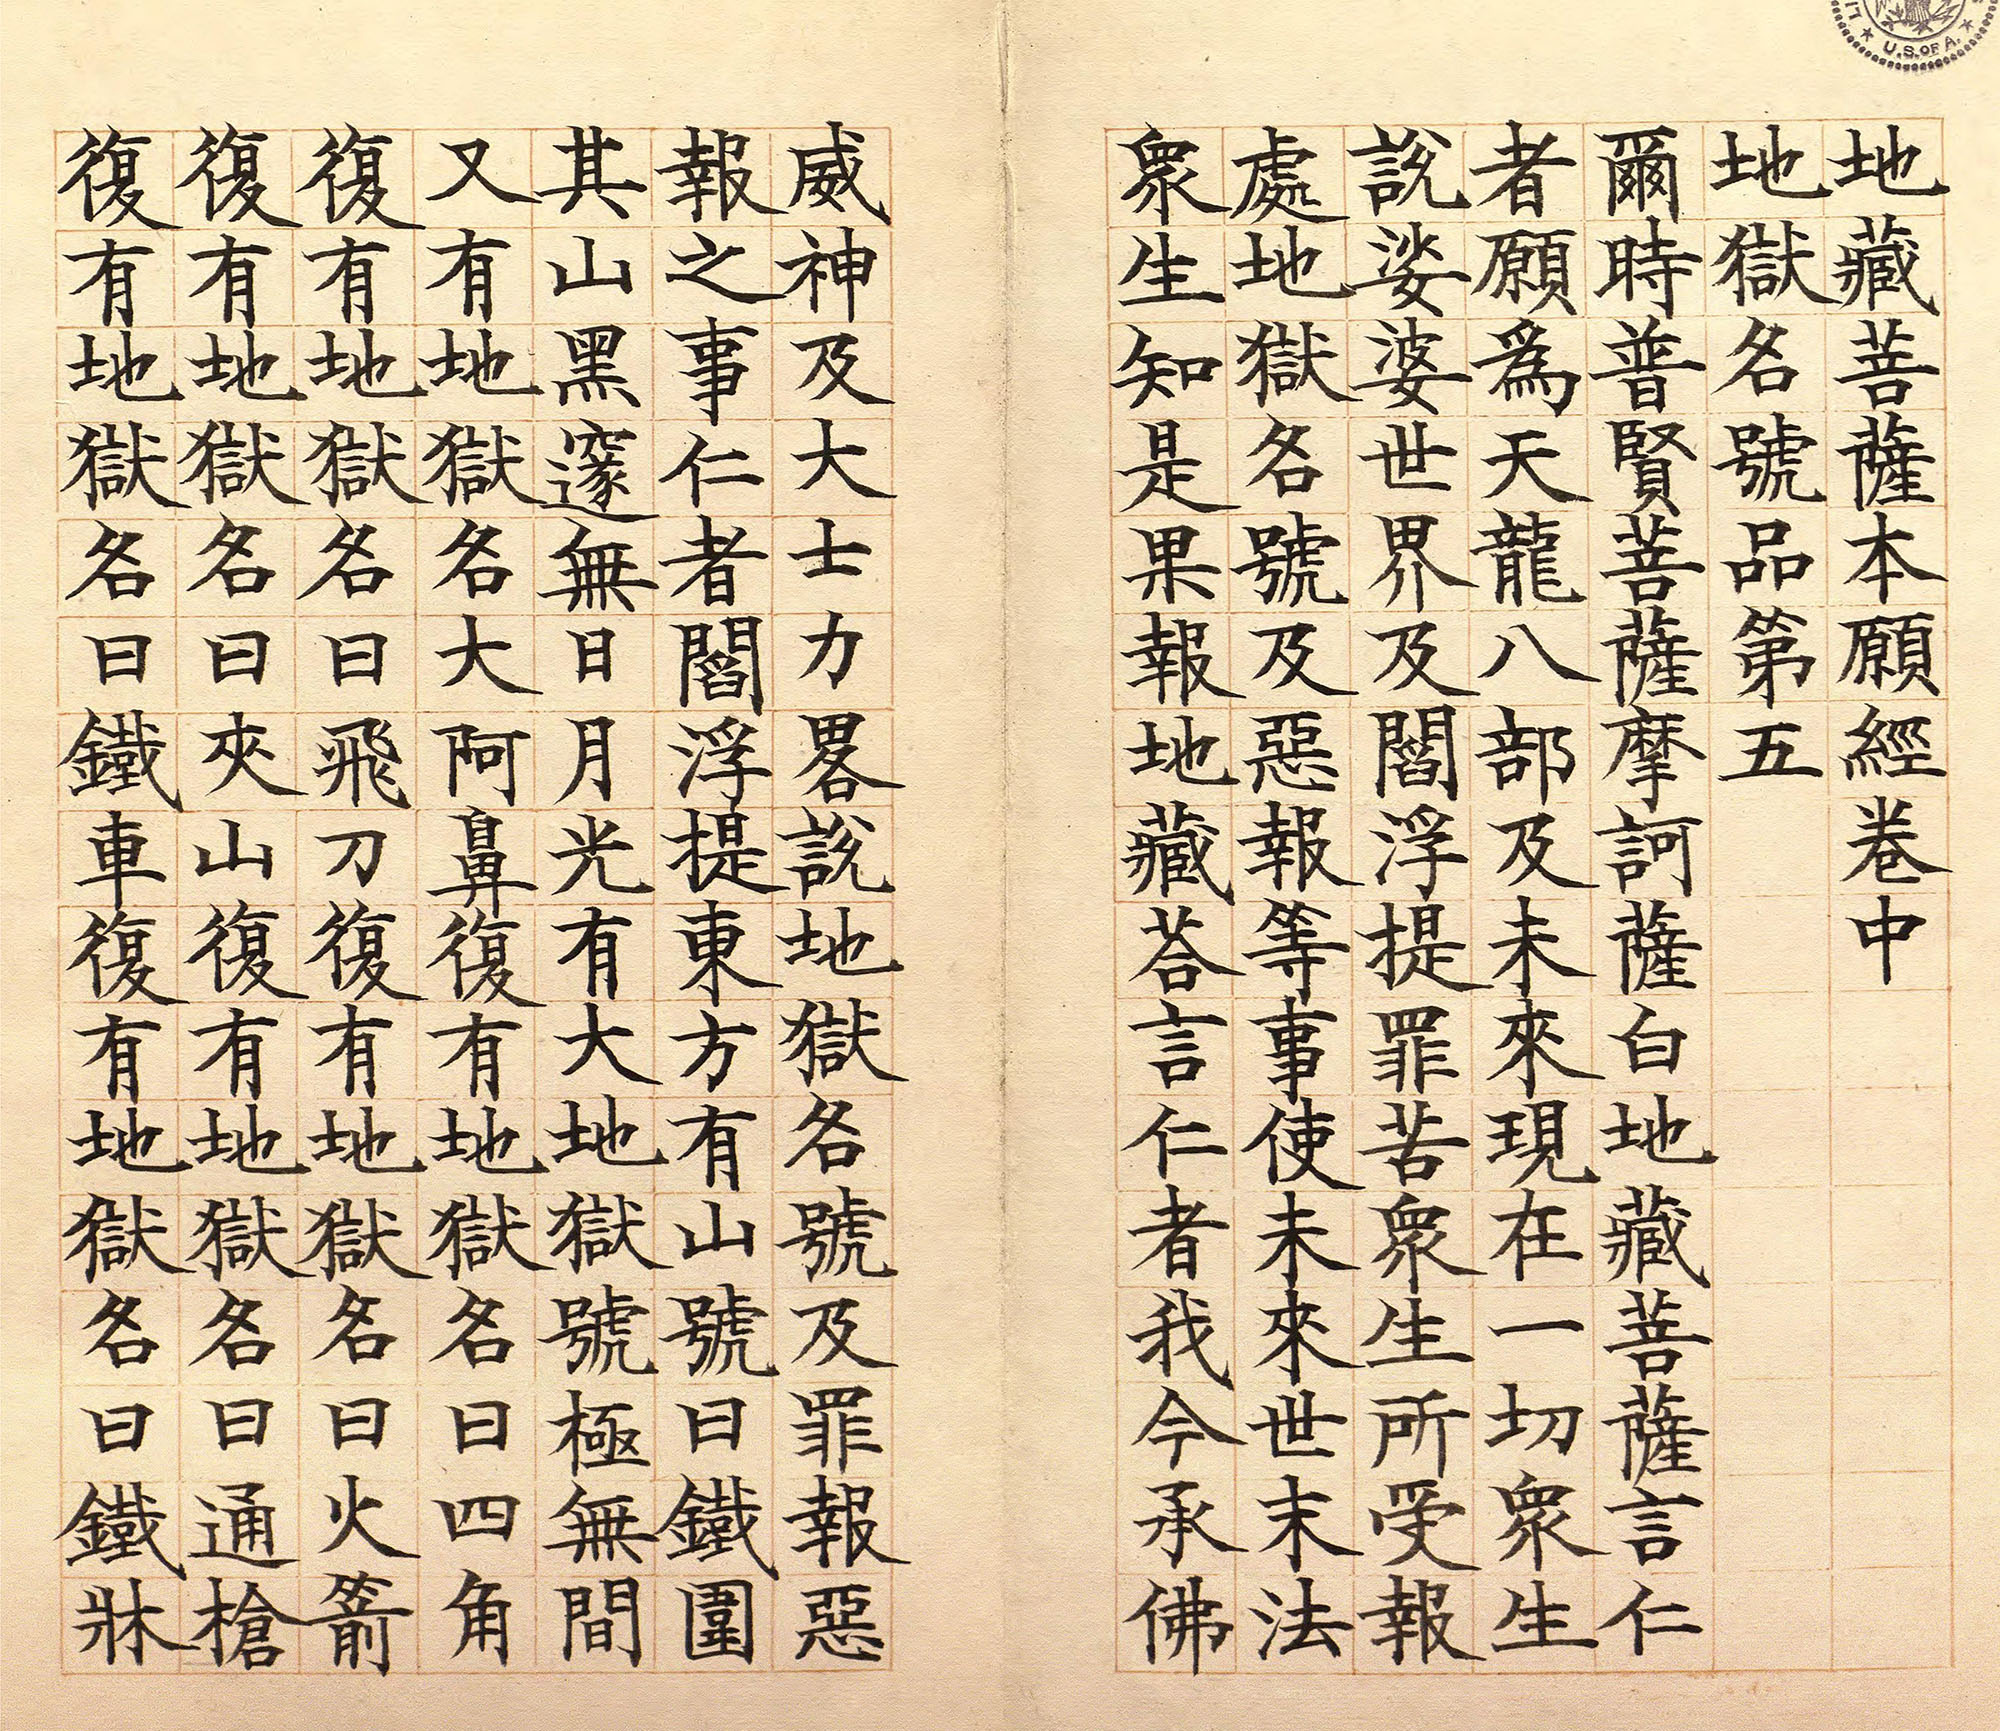 地藏菩薩本願經卷中
地獄名號品第五
爾時普賢菩薩摩訶薩白地藏菩薩言仁
者願爲天龍八部及未來現在一切衆生
說娑婆世界及閻浮提罪苦衆生所受報
處地獄名號及惡報等事使未來世末法
衆生知是果報地藏荅言仁者我今承佛
威神及大士力畧說地獄名號及罪報惡
報之事仁者閻浮提東方有山號曰鐵圍
其山黑邃無日月光有大地獄號極無間
又有地獄名大阿鼻復有地獄名曰四角
復有地獄名曰飛刀復有地獄名曰火箭
復有地獄名曰夾山復有地獄名曰通槍
復有地獄名曰鐵車復有地獄名曰鐵牀
U.S. OF A.